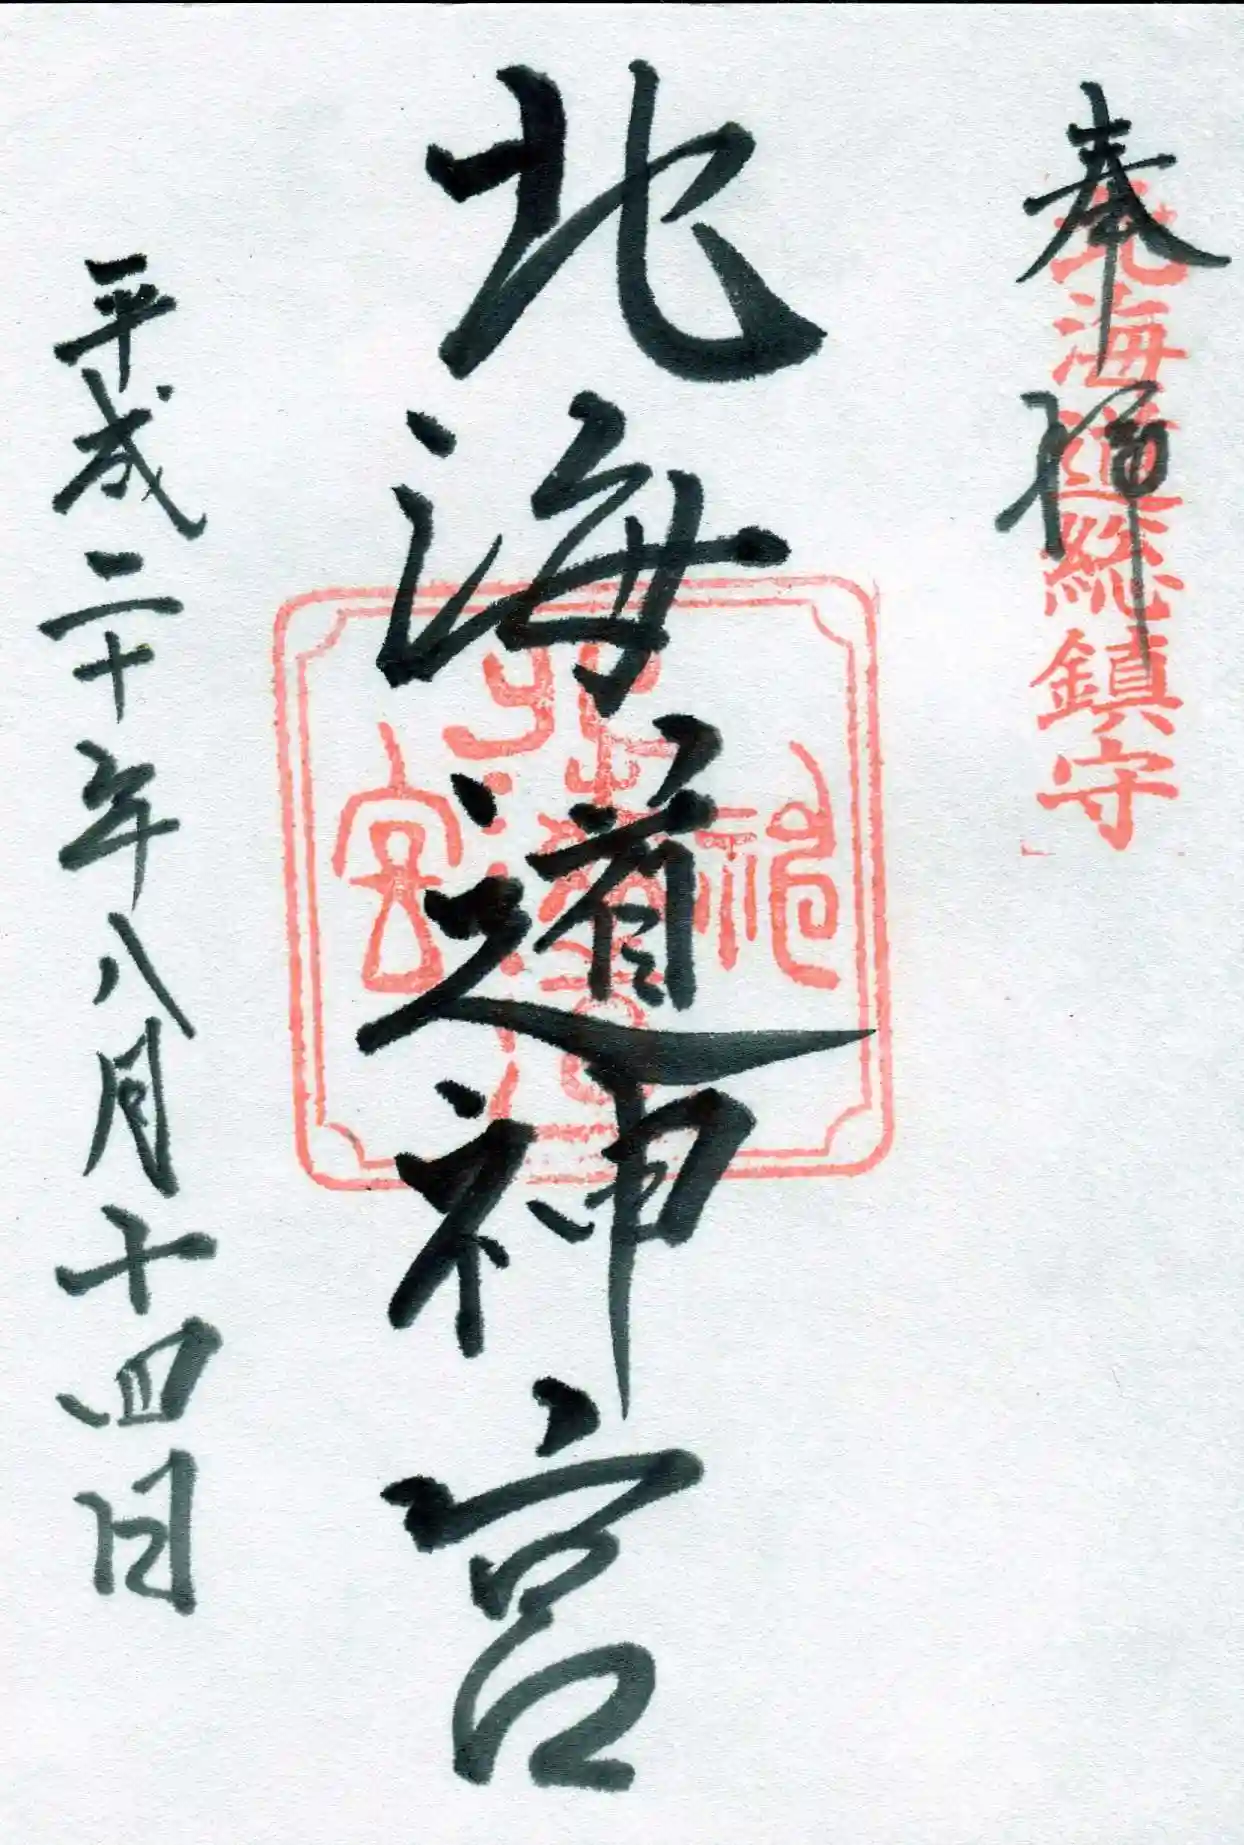 奉拝
北海道総鎮守
北海道神宮
北海道神宮
平成二十年八月十四日